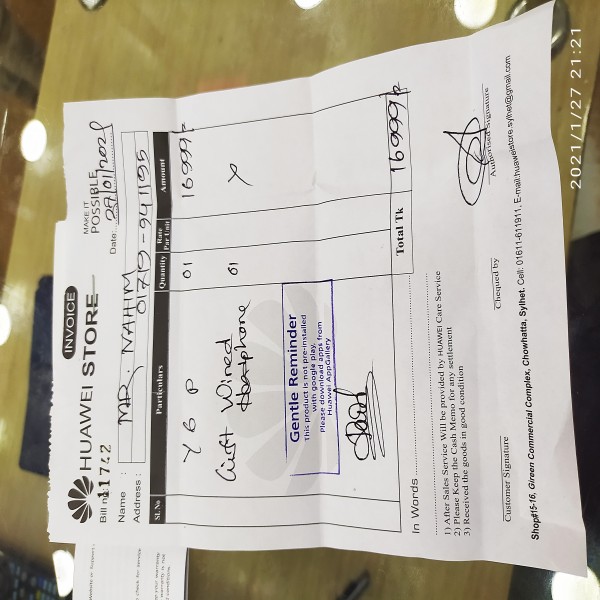 INVOICE
HUAWEI STORE
MAKE IT
POSSIBLE
Bill no: 11742
Date:
Name : MR. NAHIM
Address : 01719-941195
SL No Particulars Quantity Rate Per Unit Amount
Y 6 P 01 16999
Gift Wired 01 x
Headphone
Gentle Reminder
This product is not pre-installed
with google play.
Please download apps from
Huawei AppGallery
Total Tk 16999
In Words
1) After Sales Service Will be provided by HUAWEI Care Service
2) Please Keep the Cash Memo for any settlement
3) Received the goods in good condition
Customer Signature Chequed by Authorised Signature
Shop#15-16, Gireen Commercial Complex, Chowhatta, Sylhet. Cell: 01611-611911, E-mail.huaweistore.sylhet@gmail.com
2021/1/27 21:21